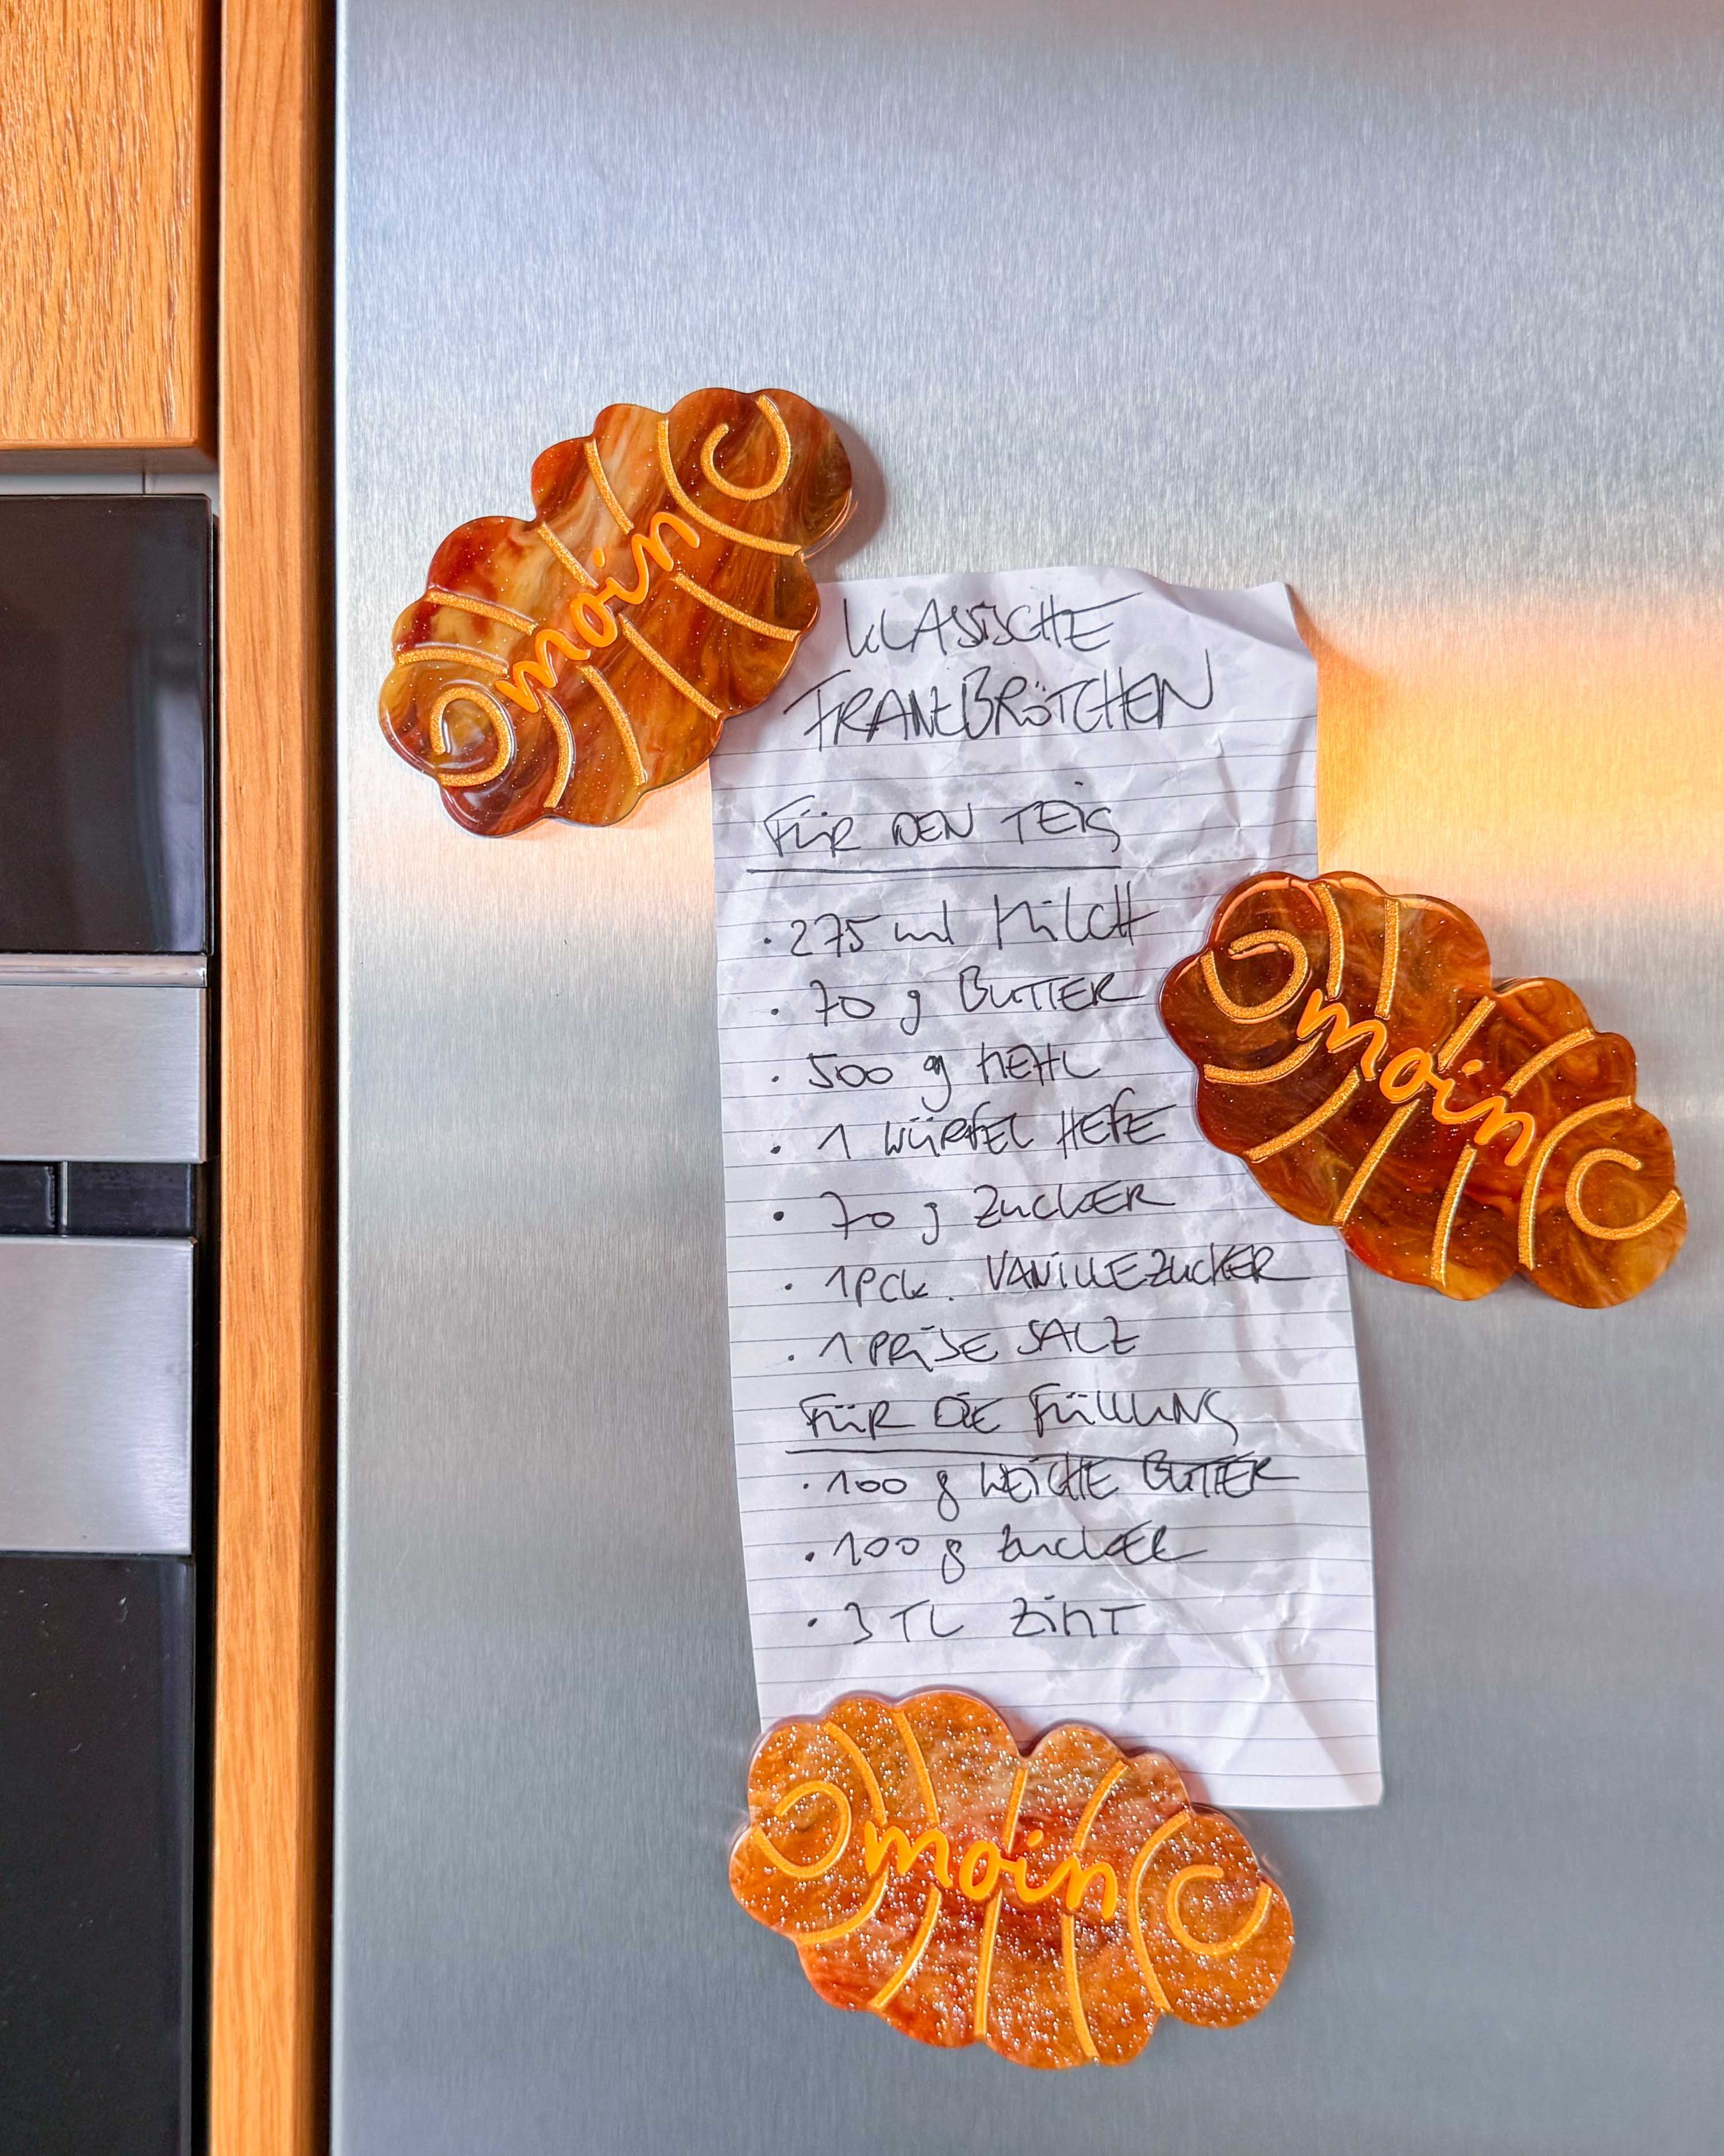 moin
KLASSISCHE
FRANZBRÖTCHEN
FÜR DEN TEIG
· 275 ml MILCH
· 70 g BUTTER
· 500 g MEHL
· 1 WÜRFEL HEFE
· 70 g ZUCKER
· 1 PCK. VANILLEZUCKER
· 1 PRISE SALZ
FÜR DIE FÜLLUNG
· 100 g WEICHE BUTTER
· 100 g ZUCKER
· 3 TL ZIMT
moin
moin